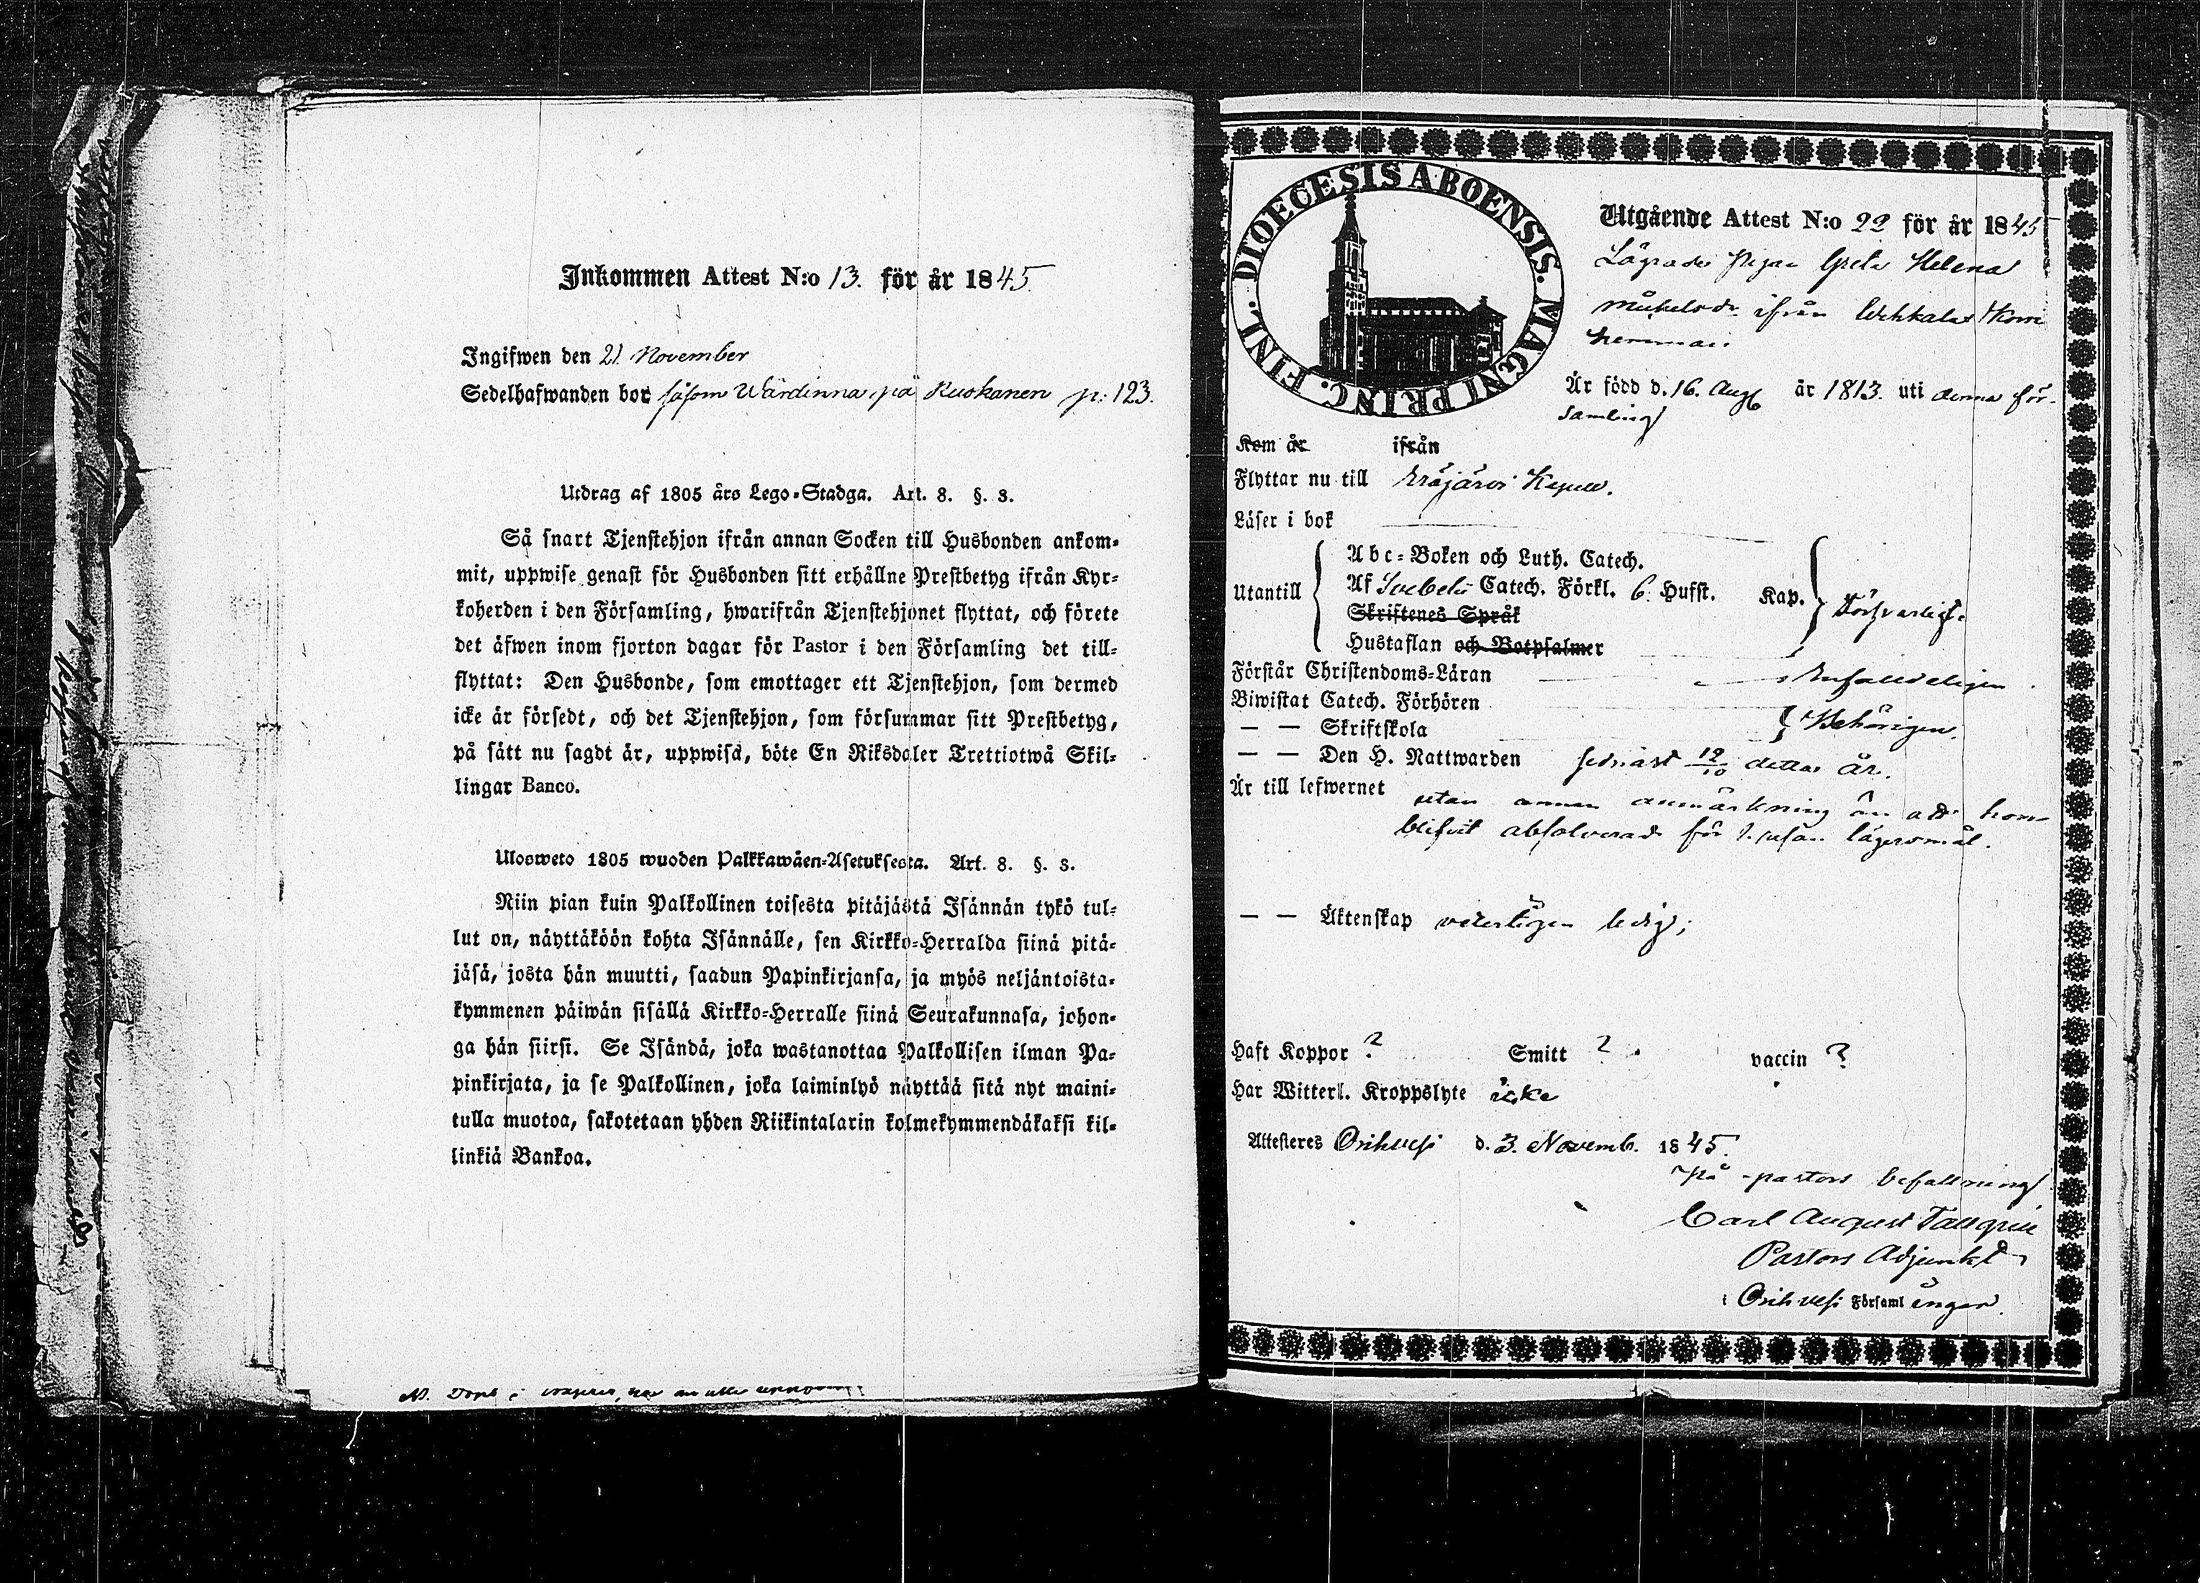 Inkommen Attest N:o 13. för år 1845.
Ingifwen den 21 November
Sedelhafwanden bor såsom Wärdinna på Kuokanen p: 123.
Utdrag af 1805 års Lego-Stadga. Art. 8. §. 3.
Så snart Tjenstehjon ifrån annan Socken till Husbonden ankom-
mit, uppwise genast för Husbonden sitt erhållne Prestbetyg ifrån Kyr-
koherden i den Församling, hwarifrån Tjenstehjonet flyttat, och förete
det äfwen inom fjorton dagar för Pastor i den Församling det till-
flyttat: Den Husbonde, som emottager ett Tjenstehjon, som dermed
icke är försedt, och det Tjenstehjon, som försummar sitt Prestbetyg,
på sätt nu sagdt är, uppwisa, böte En Riksdaler Trettiotwå Skil-
lingar Banco.
Ulosweto 1805 wuoden Palkkawäen-Asetuksesta. Art. 8. §. 3.
Niin pian kuin Palkollinen toisesta pitäjästä Isännän tykö tul-
lut on, näyttäköön kohta Isännälle, sen Kirkko-Herralda siinä pitä-
jäsä, josta hän muutti, saadun Papinkirjansa, ja myös neljäntoista-
kymmenen päiwän sisällä Kirkko-Herralle siinä Seurakunnasa, johon-
ga hän siirsi. Se Isändä, joka wastanottaa Palkollisen ilman Pa-
pinkirjata, ja se Palkollinen, joka laiminlyö näyttää sitä nyt maini-
tulla muotoa, sakotetaan yhden Riikintalarin kolmekymmendäkaksi kil-
linkiä Bankoa.
DIOECESIS ABOENSIS. MAGNI PRINC. FINL.
Utgående Attest N:o 22 för år 1845
Lägrade Pigan Greta Helena
ifrån
hemman
Är född d. 16. Aug år 1813. uti denna för-
samling
Kom år ifrån
Flyttar nu till Eräjärvi Kapell.
Läser i bok
Utantill
Abc-Boken och Luth. Catech.
Af Svebelii Catech. Förkl. 6. Hufst. Kap. försvarligt.
Skriftenes Språk
Hustaflan och Botpsalmer
Förstår Christendoms-Läran enfalldeligen
Biwistat Catech. Förhören
— — Skriftskola behörigen.
— — Den H. Nattwarden sednast 12/10 detta år.
Är till lefwernet utan annan anmärkning än att hon
blifvit absolverad för 1. resan lägersmål.
— — Äktenskap veterligen ledig;
Haft Koppor ? Smitt ? vaccin ?
Har Witterl. Kroppslyte icke
Attesteras Orihvesi d. 3. Novemb. 1845.
På pastors befallning
Carl August Tallgrén
Pastors Adjunkt
i Orihvesi Församlingar.